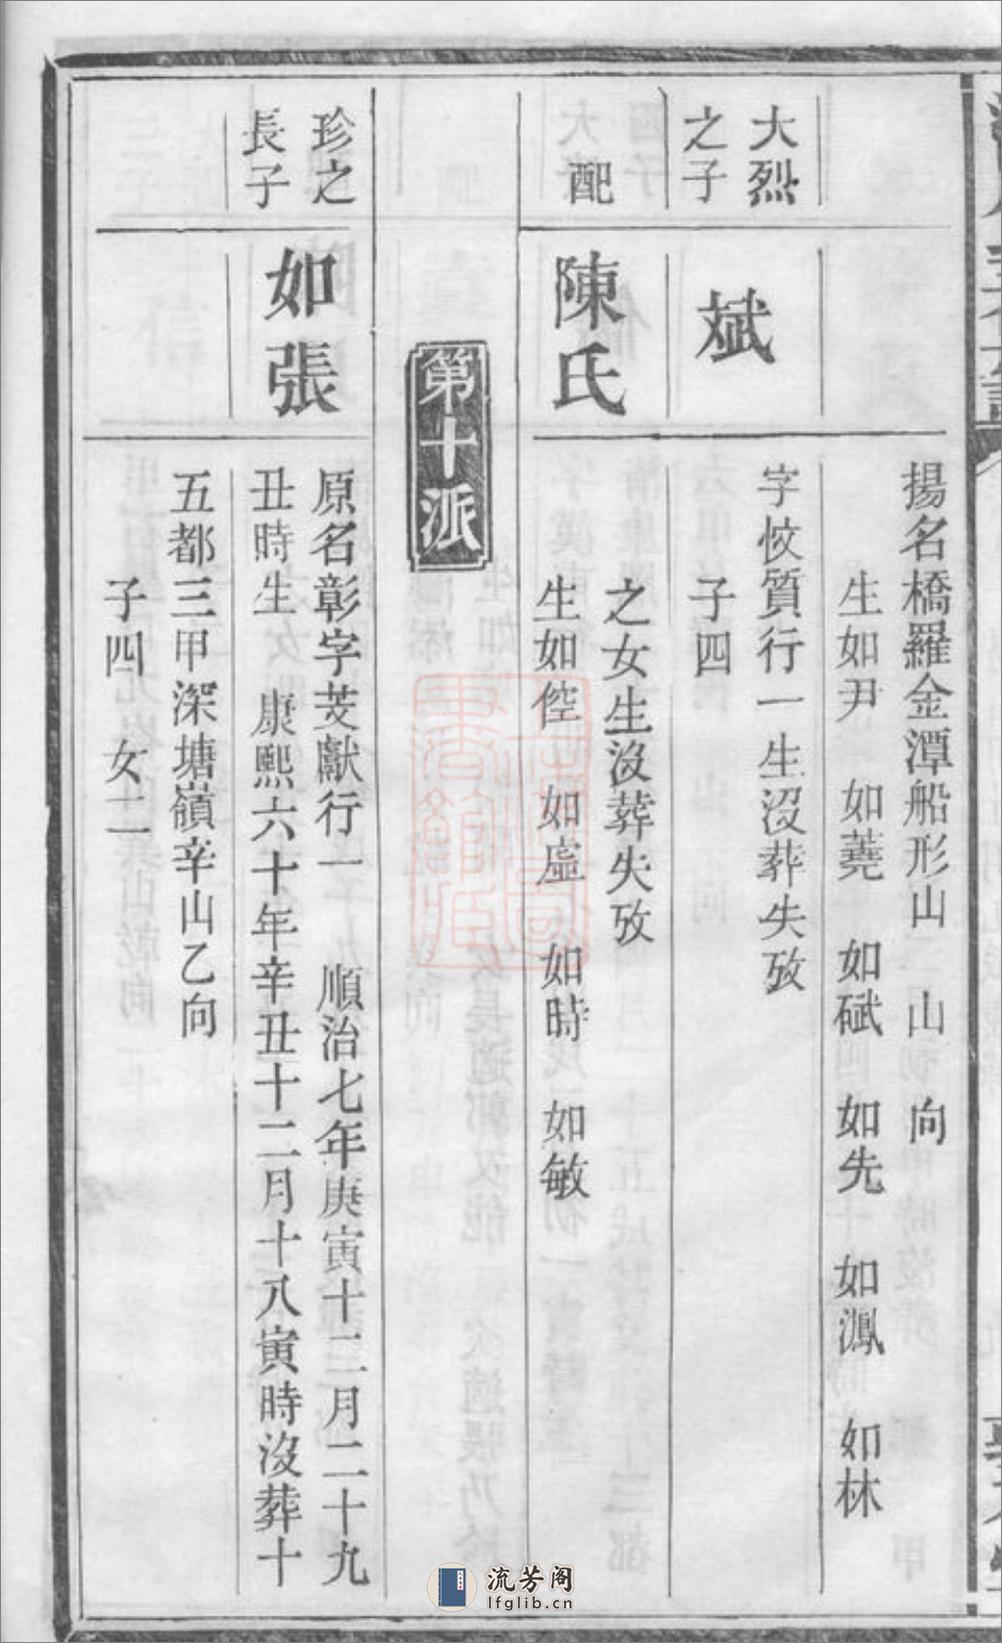 揚名橋羅金潭船形山 山 向
生如尹 如蕘 如碔 如先 如鳳 如林
大烈
之子
斌
字恔質行一生沒葬失攷
子四
配
陳氏
之女生沒葬失攷
生如倥 如虛 如時 如敏
第十派
珍之
長子
如張
原名彰字芰獻行一 順治七年庚寅十二月二十九
丑時生 康熙六十年辛丑十二月十八寅時沒葬十
五都三甲深塘嶺辛山乙向
子四 女二
流芳阁
lfglib.cn